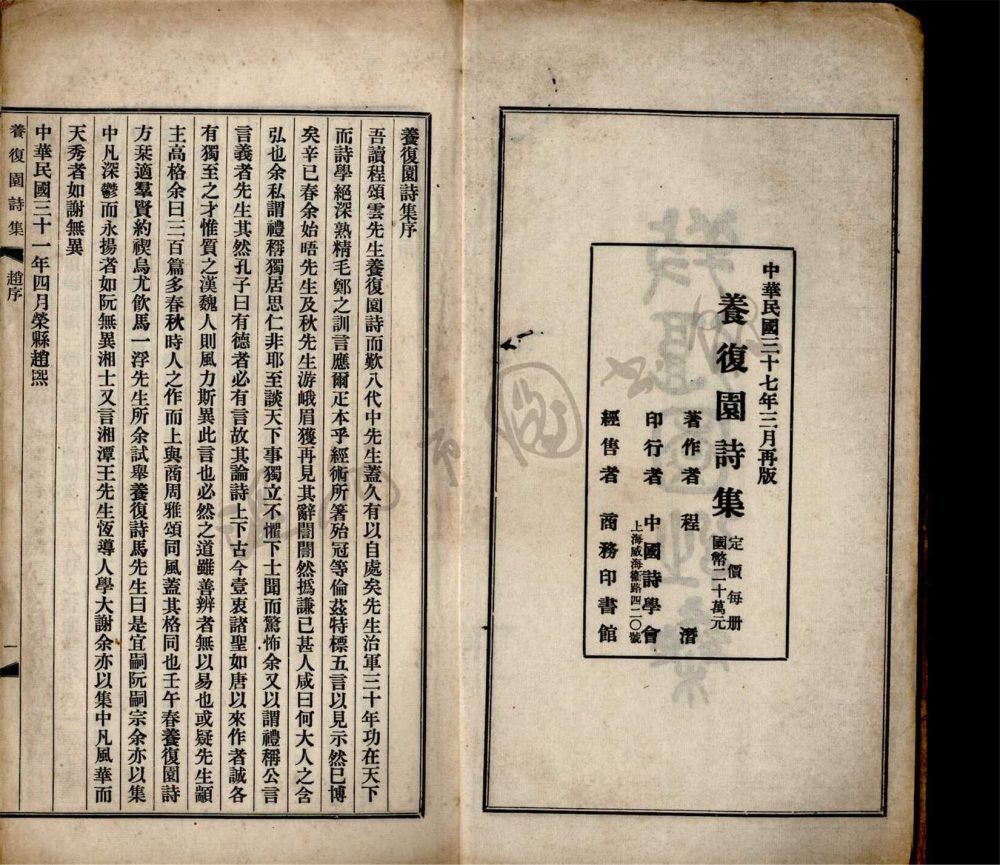 中華民國三十七年三月再版
養復園詩集
定價每册
國幣二十萬元
著作者 程潛
印行者 中國詩學會
上海威海衞路四二〇號
經售者 商務印書館
養復園詩集序
吾讀程頌雲先生養復園詩而歎八代中先生蓋久有以自處矣先生治軍三十年功在天下
而詩學絕深熟精毛鄭之訓言應爾疋本乎經術所箸殆冠等倫茲特標五言以見示然已博
矣辛巳春余始晤先生及秋先生游峨眉獲再見其辭誾誾然撝謙已甚人咸曰何大人之含
弘也余私謂禮稱獨居思仁非耶至談天下事獨立不懼下士聞而驚怖余又以謂禮稱公言
言義者先生其然孔子曰有德者必有言故其論詩上下古今壹衷諸聖如唐以來作者誠各
有獨至之才惟質之漢魏人則風力斯異此言也必然之道雖善辨者無以易也或疑先生顓
主高格余曰三百篇多春秋時人之作而上與商周雅頌同風蓋其格同也壬午春養復園詩
方栞適羣賢約禊烏尤飲馬一浮先生所余試舉養復詩馬先生曰是宜嗣阮嗣宗余亦以集
中凡深鬱而永揚者如阮無異湘士又言湘潭王先生恆導人學大謝余亦以集中凡風華而
天秀者如謝無異
中華民國三十一年四月榮縣趙熙
養復園詩集 趙序 一